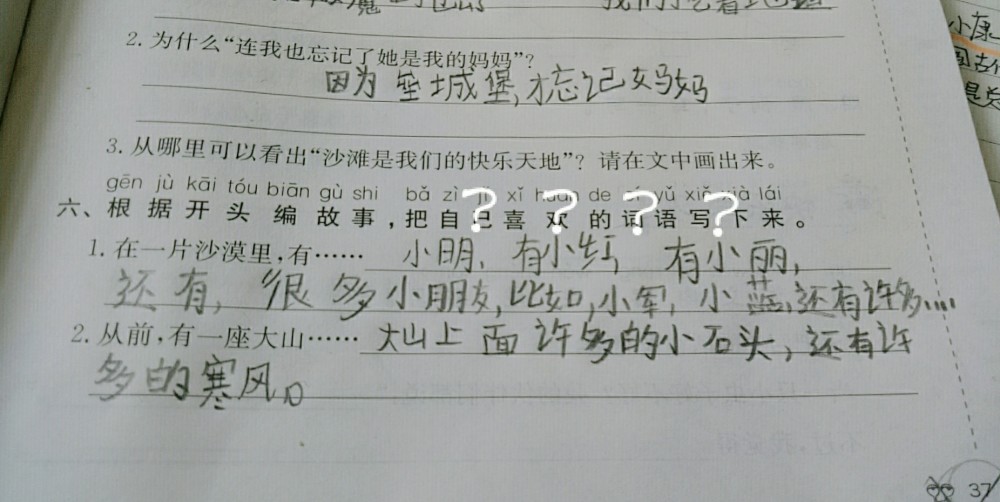 我们 着
2. 为什么“连我也忘记了她是我的妈妈”？
因为 座城堡，才忘记妈妈
3. 从哪里可以看出“沙滩是我们的快乐天地”？请在文中画出来。
gēn jù kāi tóu biān gù shi bǎ zì jǐ xǐ huan de yǔ xiě xià lái
六、根据开头 编故事，把自己喜欢的话语写下来。
? ? ? ?
1. 在一片沙漠里，有…… 小明，有小红，有小丽，
还有，很多小朋友，比如，小军，小蓝，还有许多....
2. 从前，有一座大山…… 大山上面许多的小石头，还有许
多的寒风。
小康
是
37